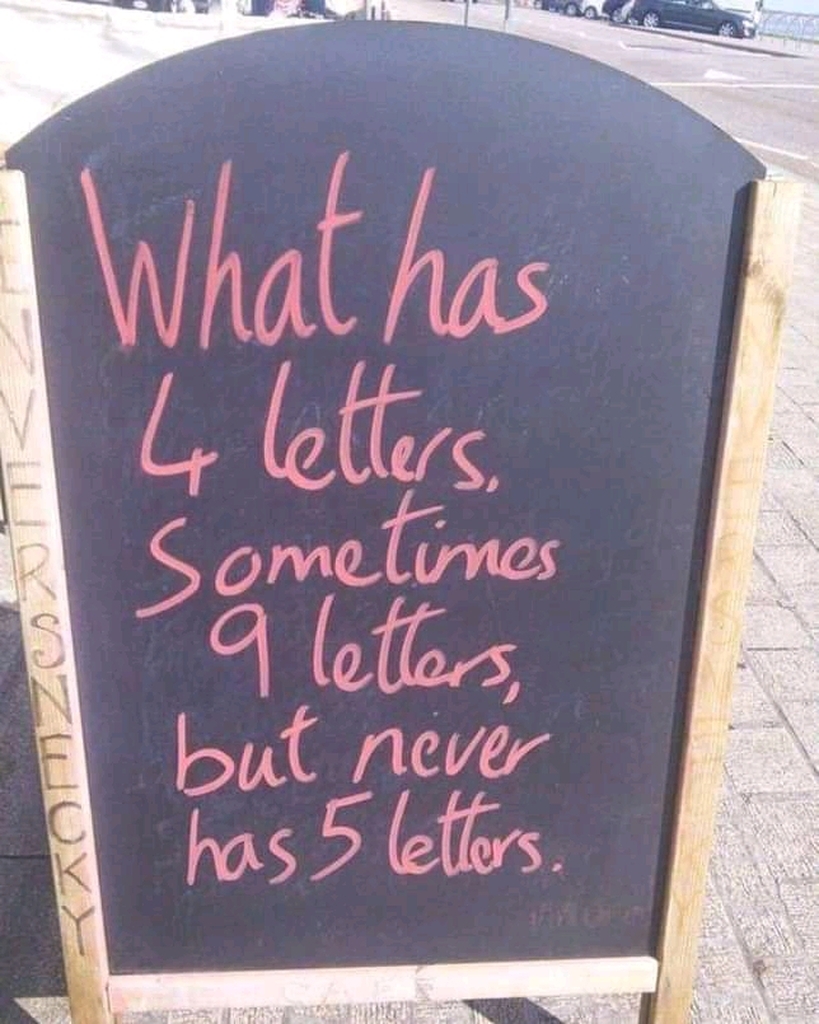 What has
4 letters.
Sometimes
9 letters,
but never
has 5 letters.